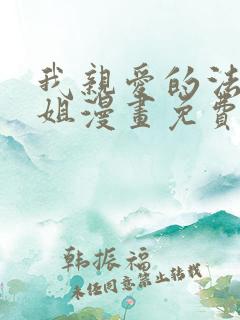 我親愛的法
姐漫畫免費
韩振福
未经同意禁止转载